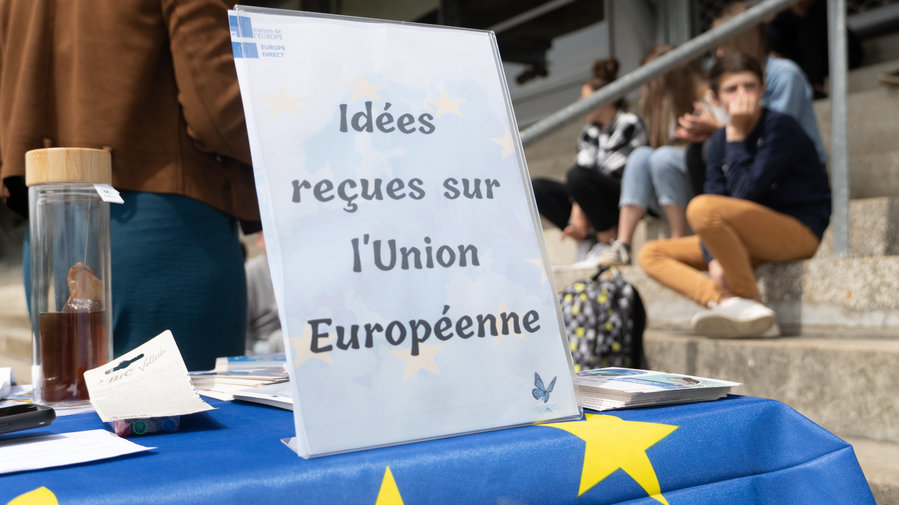 maison de
l'EUROPE
EUROPE
DIRECT
Idées
reçues sur
l'Union
Européenne